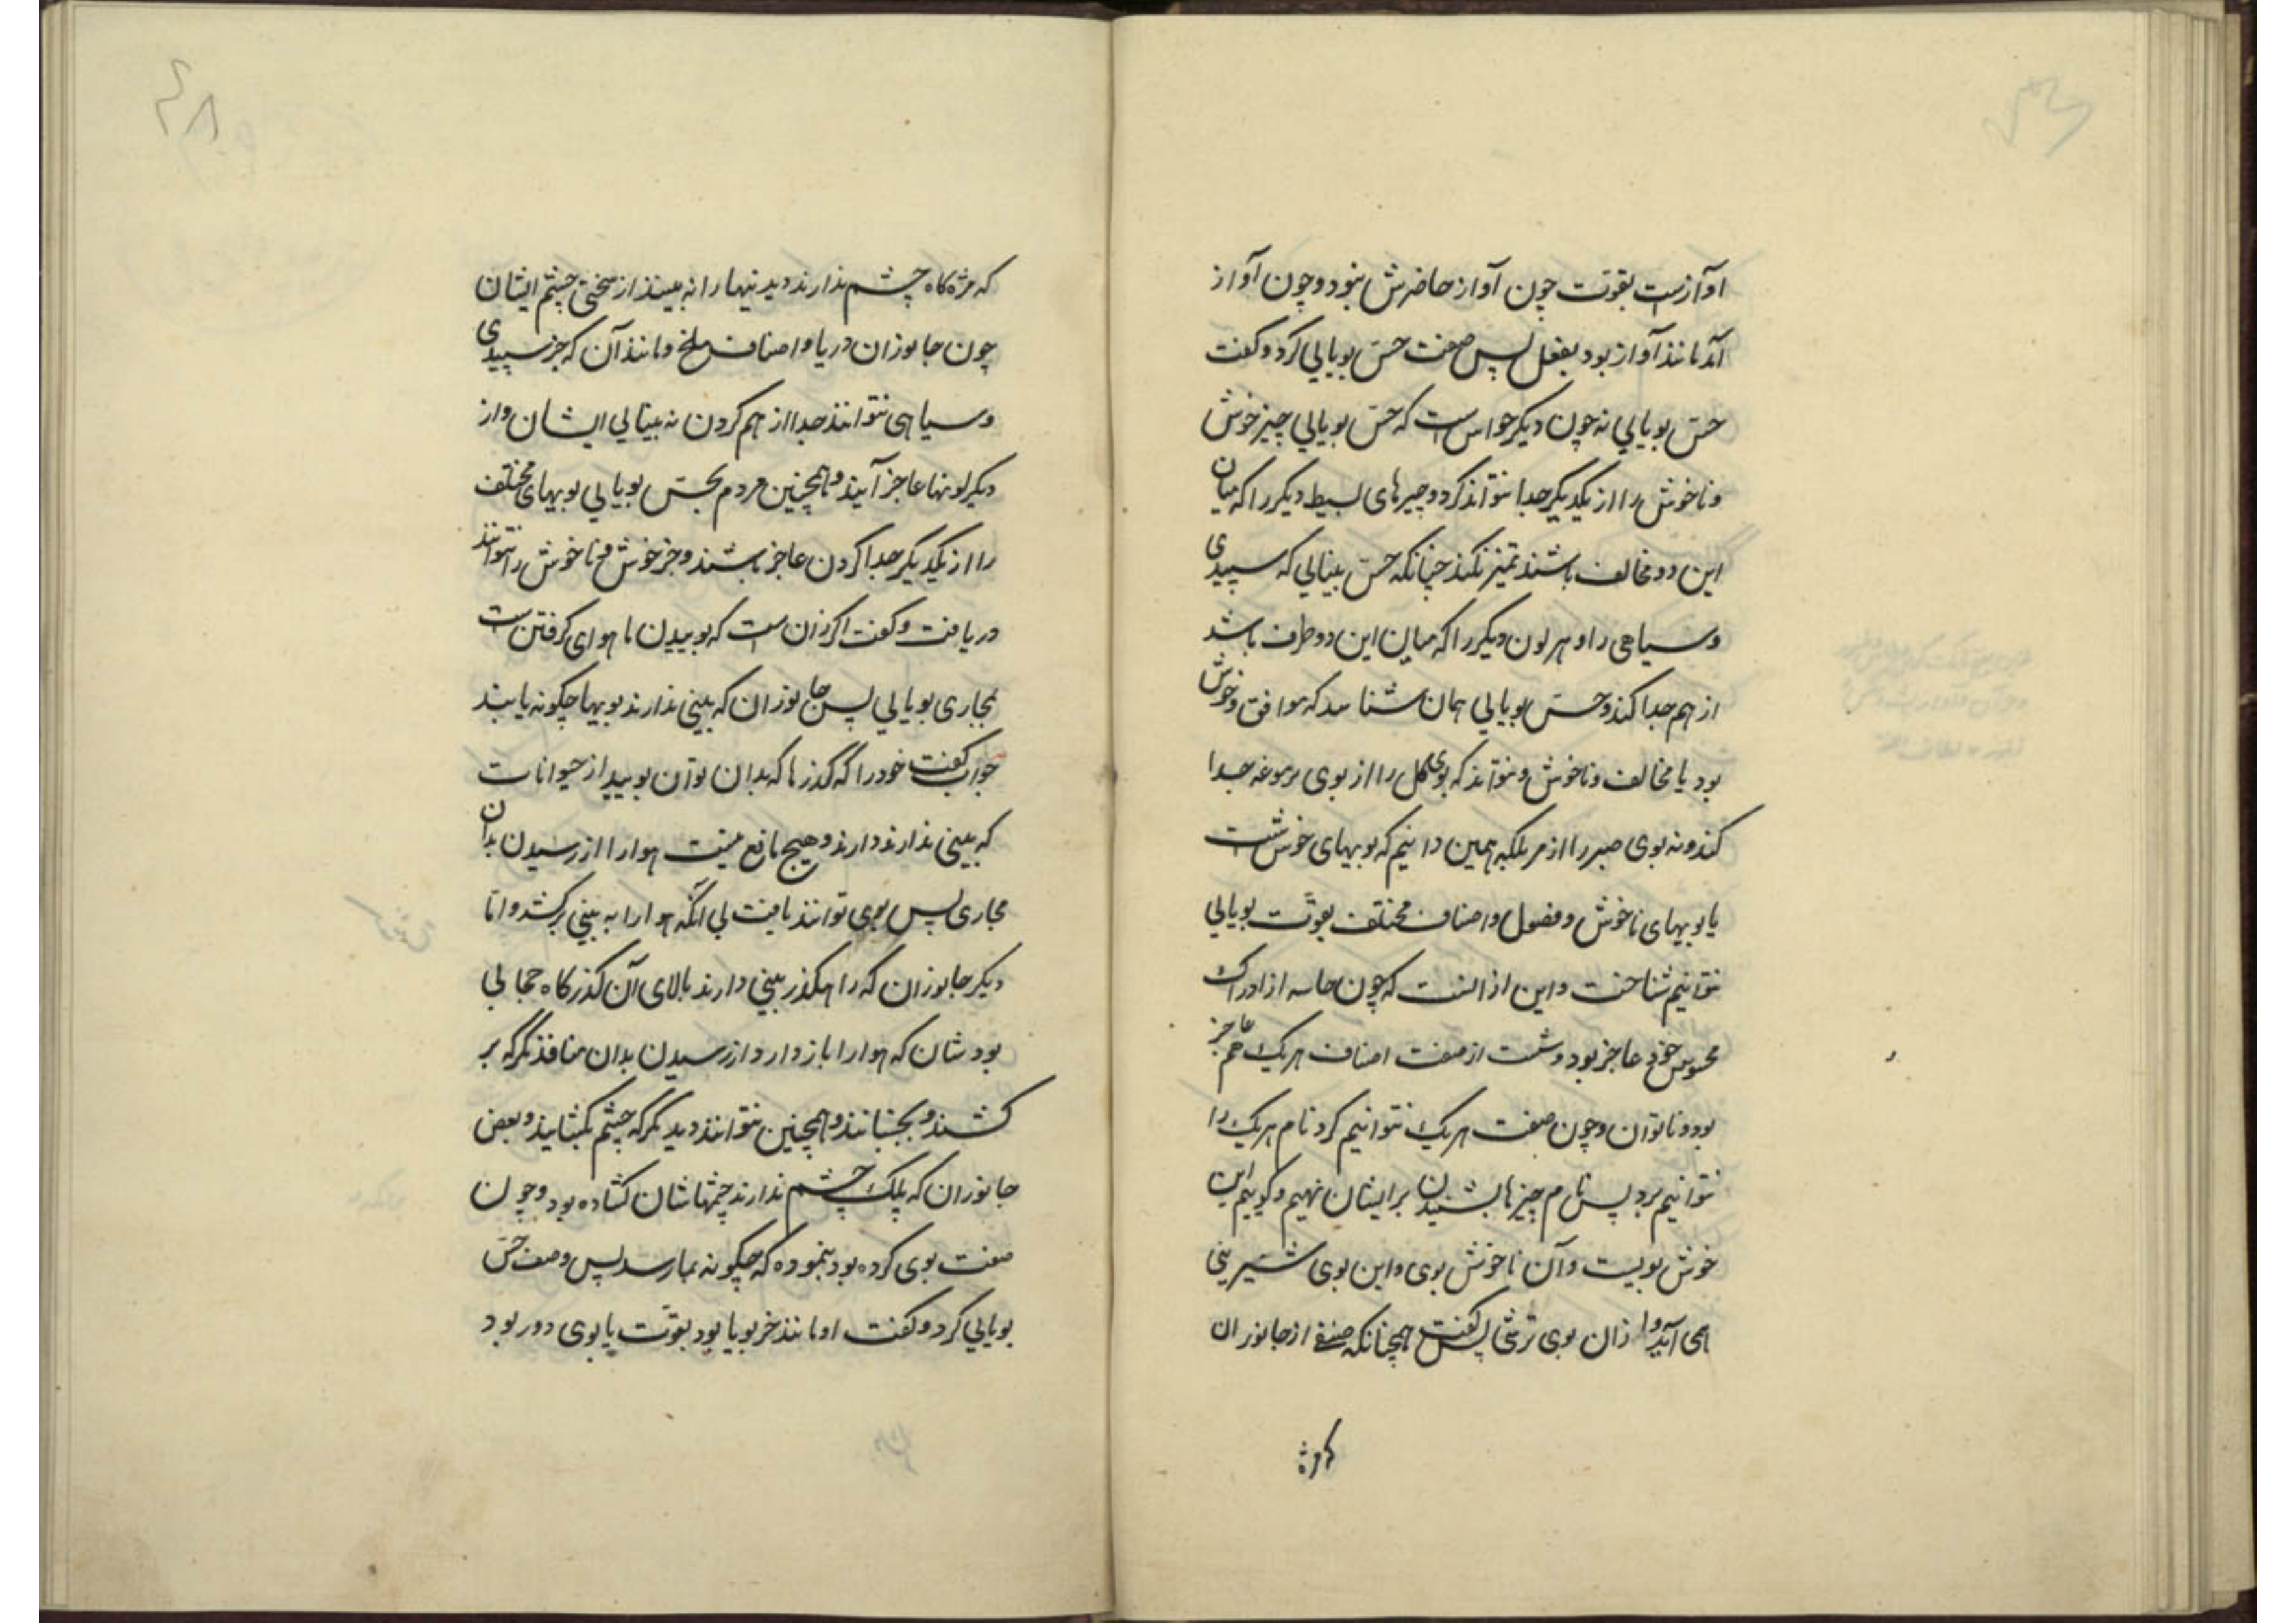 اوآزست بقوت چون آواز حاضرش نبود و چون آواز
آمد مانند آواز بود بفعل پس صفت حسّ بویایی کرد و گفت
حسّ بویایی نه چون دیگر حواس است که حسّ بویایی چیز خوش
و ناخوش را از یکدیگر جدا نتواند کرد و چیزهای بسیط دیگر را که میان
این دو مخالف باشند تمیز نکند چنانکه حسّ بینایی که سپیدی
و سیاهی را و هر لون دیگر را که میان این دو طرف باشد
از هم جدا کند و حسّ بویایی همان شناسد که موافق و خوش
بود یا مخالف و ناخوش و نتواند که بوی گل را از بوی جدا
کند و نه بوی صبر را از مر بلکه همین دانیم که بویهای خوش است
یا بویهای ناخوش و فصول و اصناف مختلف بقوّت بویایی
نتوانیم شناخت و این از انست که چون حاسه از ادراک
محسوس خود عاجز بود و سست از صفت اصناف هریک هم عاجز
بود و ناتوان و چون صفت هر یک نتوانیم کرد نام هر یک را
نتوانیم برد پس نام چیزها بشنیدن بر ایشان نهیم و گوییم این
خوش بویست و آن ناخوش بوی و این بوی شیرینی
همی آید و از ان بوی ترشی پس گفت همچنانکه صنفی از جانوران
که مژه
۴۸
که مژه گاه چشم ندارند دیدنیها را نه بینند از سختی چشم ایشان
چون جانوران دریا و اصناف ملخ و مانند آن که جز سپیدی
و سیاهی نتوانند جدا از هم کردن نه بینایی ایشان و از
دیگر لونها عاجز آیند و همچنین مردم بحسّ بویایی بویهای مختلف
را از یکدیگر جدا کردن عاجز باشند و جز خوش و ناخوش را نتوانند
دریافت و گفت اگر زان است که بوییدن ما هوای گرفتن است
بمجاری بویایی پس جانوران که بینی ندارند بویها چگونه یابند
جواب گفت خود را که گذرها که بدان توان بویید از حیوانات
که بینی ندارند دارند و هیچ مانع نیست هوا را از رسیدن بدان
مجاری پس بوی توانند یافت بی آنکه هوا را به بینی برکشند و اما
دیگر جانوران که راهگذر بینی دارند بالای آن گذرگاه حجابی
بودشان که هوا را باز دارد از رسیدن بدان منافذ مگر که بر
کشند و بجنبانند و همچنین نتوانند دید مگر که چشم بگشایند و بعض
جانوران که پلک چشم ندارند چشمهاشان گشاده بود و چون
صفت بوی کرده بود بنموده که چگونه بما رسد پس وصف حسّ
بویایی کرد و گفت او مانند خر بویا بود بقوّت یا بوی دور بود